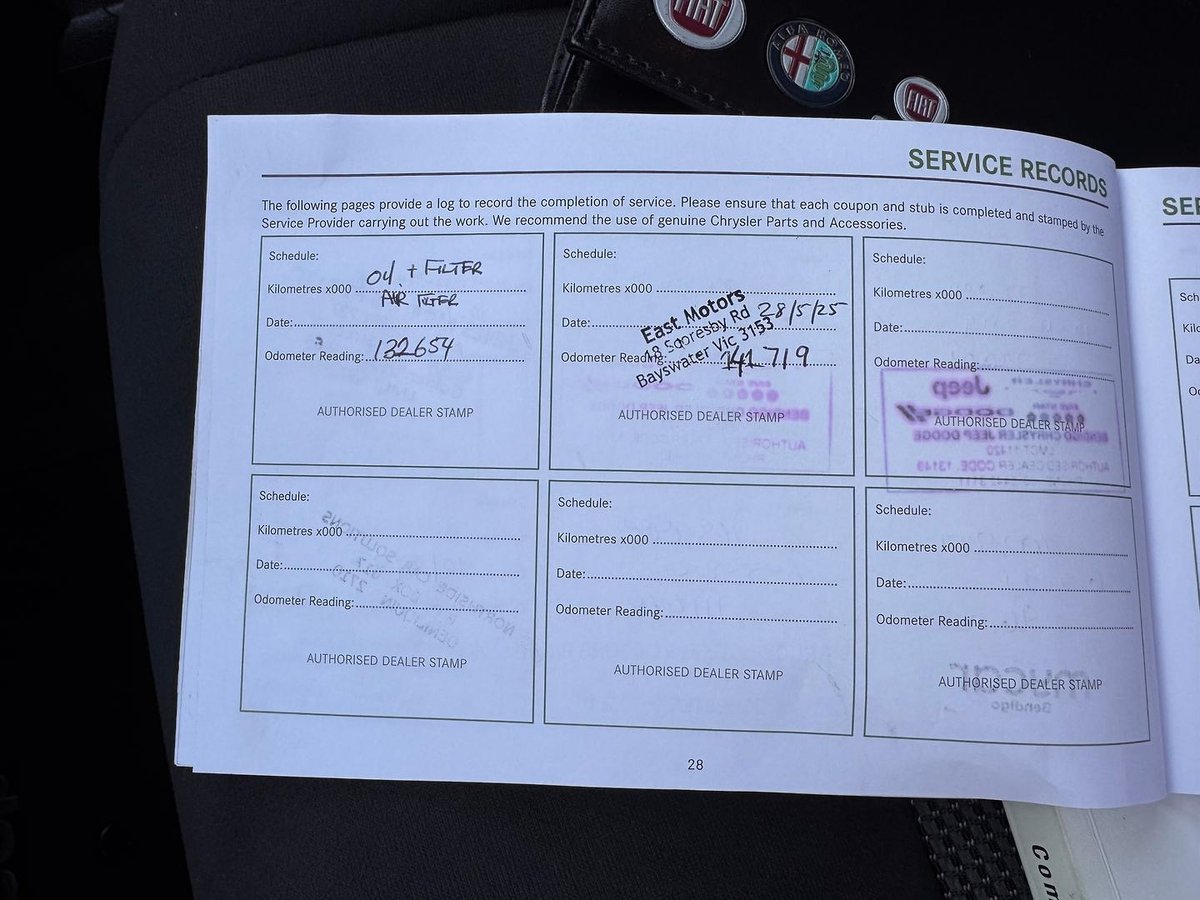 FIAT
ALFA ROMEO
FIAT
SERVICE RECORDS
The following pages provide a log to record the completion of service. Please ensure that each coupon and stub is completed and stamped by the
Service Provider carrying out the work. We recommend the use of genuine Chrysler Parts and Accessories.
Schedule:
OIL + FILTER
Kilometres x000
AIR FILTER
Date:
Odometer Reading: 132654
AUTHORISED DEALER STAMP
Schedule:
Kilometres x000
East Motors
Date: 28/5/25
48 Scoresby Rd
Bayswater Vic 3153
Odometer Reading: 141719
AUTHORISED DEALER STAMP
Schedule:
Kilometres x000
Date:
Odometer Reading:
Jeep
AUTHORISED DEALER STAMP
BENDIGO CHRYSLER JEEP DODGE
LMCT 11420
AUTHORISED DEALER CODE. 13149
Schedule:
Kilometres x000
Date:
Odometer Reading:
AUTHORISED DEALER STAMP
Schedule:
Kilometres x000
Date:
Odometer Reading:
AUTHORISED DEALER STAMP
Schedule:
Kilometres x000
Date:
Odometer Reading:
AUTHORISED DEALER STAMP
mycar
Bendigo
28